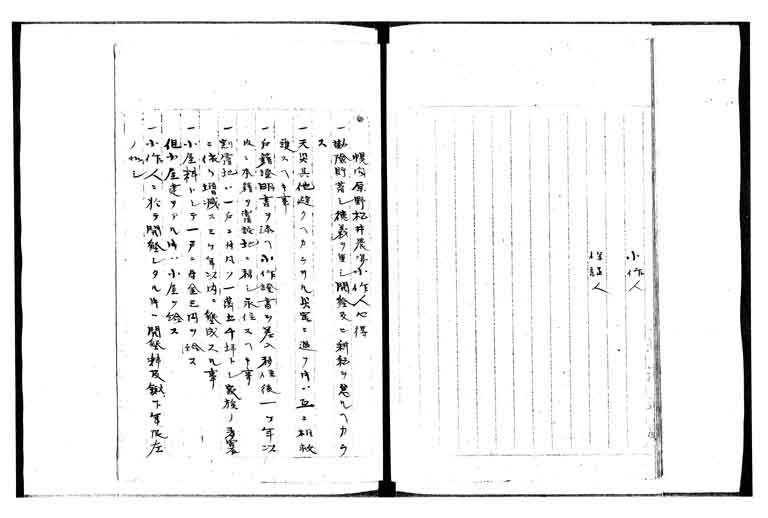 小作人
保証人
幌内原野松井農場小作人心得
一勤倹貯蓄シ徳義ヲ重シ開墾及ヒ耕耘ヲ怠ルヘカラ
ス
一天災其他避クヘカラサル災害ニ遭フ時ハ互ニ相救
護スヘキ事
一戸籍證明書ヲ添ヘ小作證書ヲ差入移住後一ケ年以
内ニ本籍ヲ当該地ニ移シ永住スヘキ事
割当地ハ一戸ニ付凡ソ一萬五千坪トシ家族ノ多寡
ニ依リ増減ス五ケ年以内ニ墾成スル事
一小屋料トシテ一戸ニ付金三円ヲ給ス
但小屋建ヲアル時ハ小屋ヲ給ス
一小作人ニ於テ開墾シタル時ハ開墾料及鍬下年度左
ノ如シ